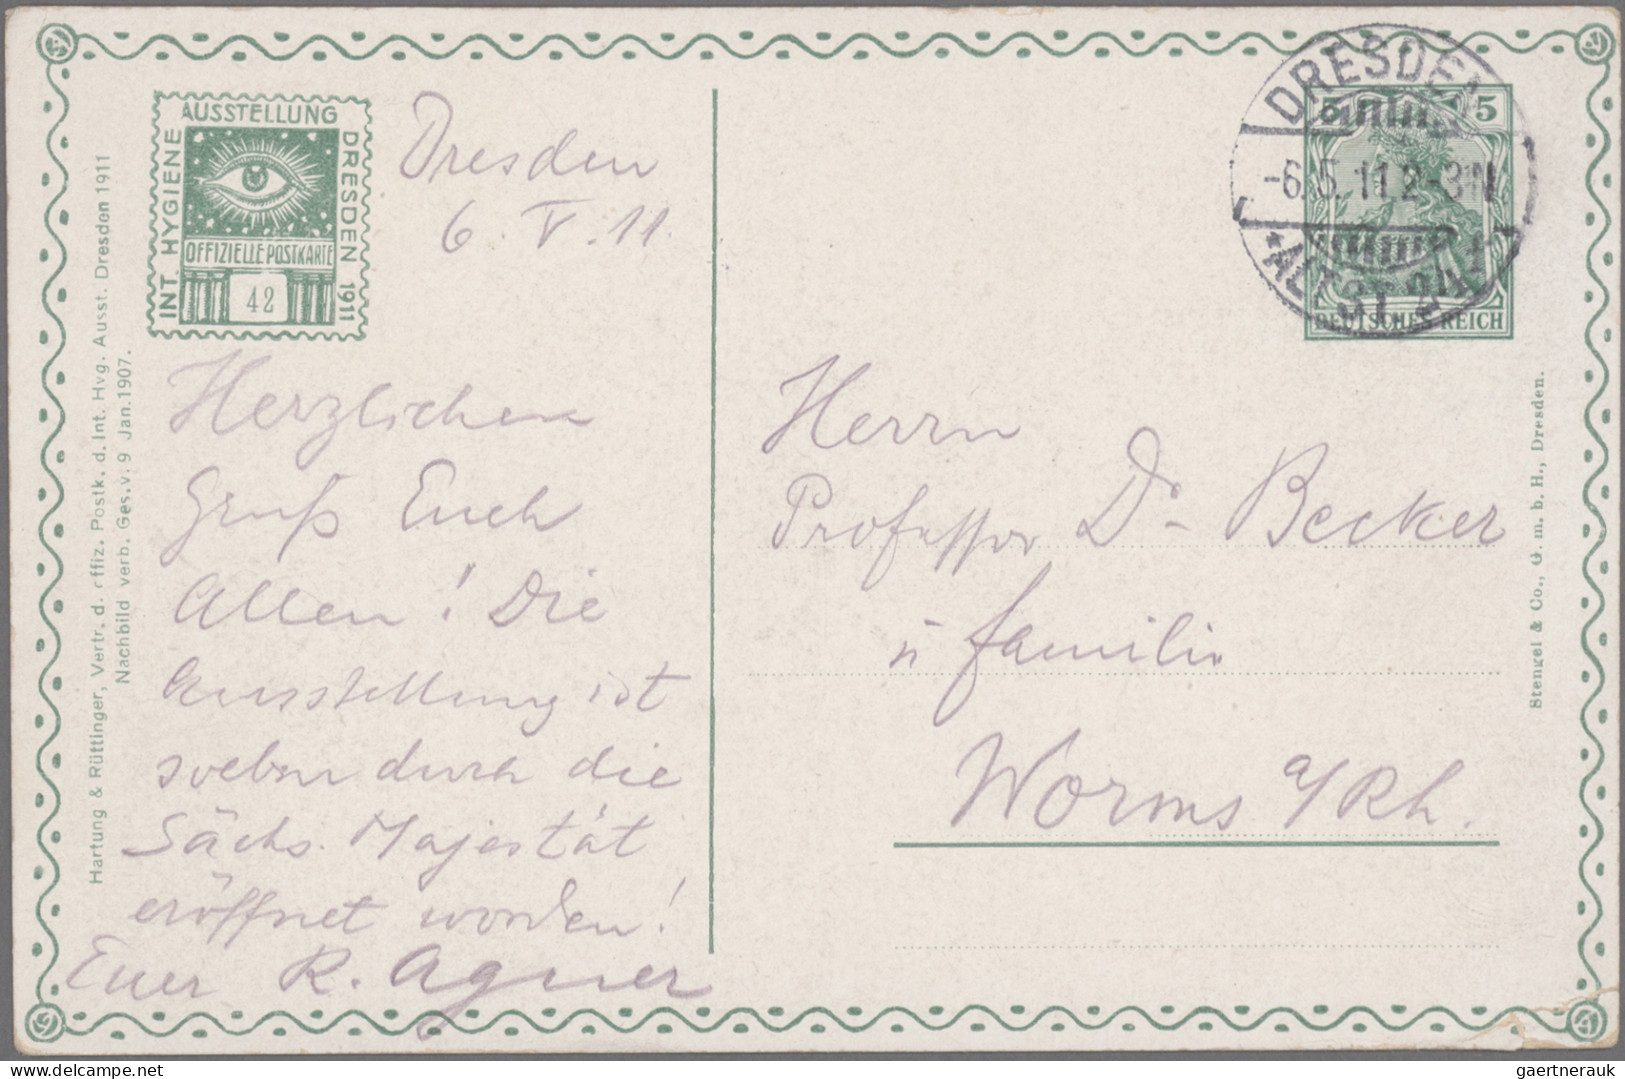 AUSSTELLUNG
INT. HYGIENE
DRESDEN 1911
OFFIZIELLE POSTKARTE
42
Hartung & Rüttinger, Vertr. d. offiz. Postk. d. Int. Hyg. Ausst. Dresden 1911
Nachbild verb. Ges. v. 9 Jan. 1907.
Dresden
6. V. 11.
Herzlichen
Gruß Euch
Allen! Die
Ausstellung ist
soeben durch die
Sächs. Majestät
eröffnet worden!
Euer R. Agner
DRESDEN
-6.5.11.2-3N.
*ALTST. 24 z
5 5
DEUTSCHES REICH
Herrn
Professor Dr. Becker
u Familie
Worms a/Rh.
Stengel & Co., G. m. b. H., Dresden.
gaertnerauk